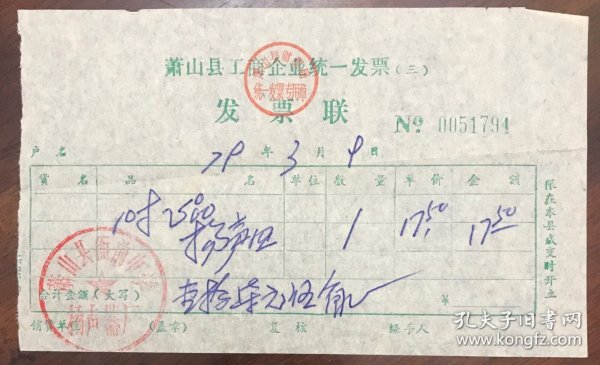 萧山县工商企业统一发票(三)
发票联
№ 0051794
户名
79年3月9日
货名 品名 单位 数量 单价 金额
10寸2500 1 17.50 17.50
扬声器
合计金额(大写) 壹拾柒元伍角 ¥
销货单位 (盖章) 复核 经手人
限在本县成交时开立
萧山县
孔夫子旧书网
www.kongfz.com